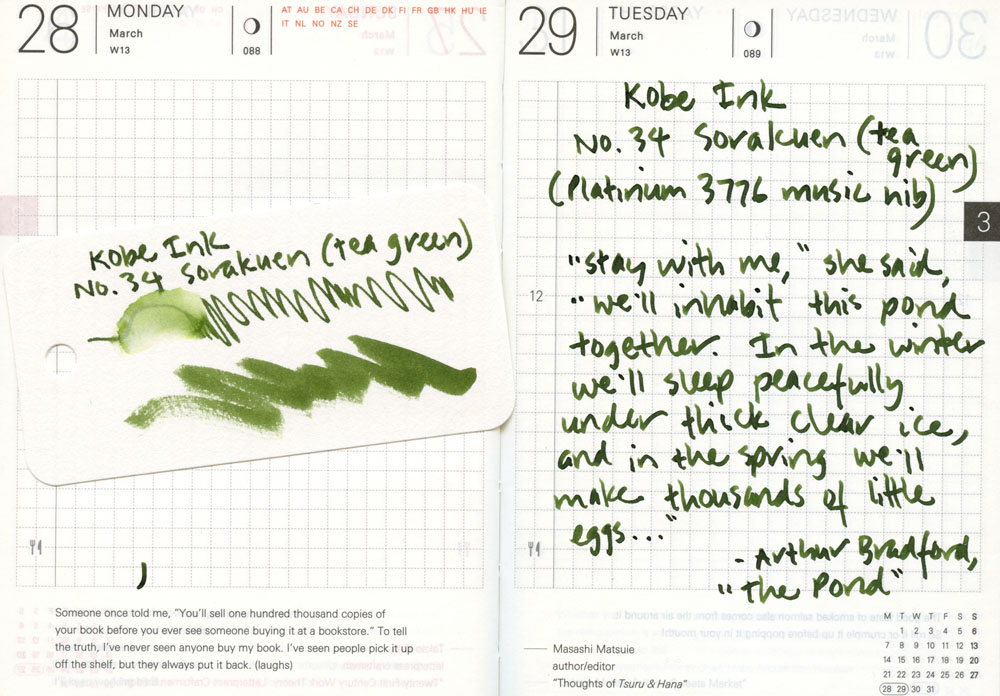 28 MONDAY
March
W13
088
AT AU BE CA CH DE DK FI FR GB HK HU IE
IT NL NO NZ SE
Kobe Ink
No. 34 Sorakuen (tea green)
Someone once told me, “You’ll sell one hundred thousand copies of
your book before you ever see someone buying it at a bookstore.” To tell
the truth, I’ve never seen anyone buy my book. I’ve seen people pick it up
off the shelf, but they always put it back. (laughs)
29 TUESDAY
March
W13
089
Kobe Ink
No. 34 Sorakuen (tea
green)
(Platinium 3776 music nib)
3
"stay with me," she said,
12
"we'll inhabit this pond
together. In the winter
we'll sleep peacefully
under thick clear ice,
and in the spring we'll
make thousands of little
eggs..."
- Arthur Bradford,
"the Pond"
Masashi Matsuie
author/editor
“Thoughts of Tsuru & Hana”
M T W T F S S
1 2 3 4 5 6
7 8 9 10 11 12 13
14 15 16 17 18 19 20
21 22 23 24 25 26 27
28 29 30 31